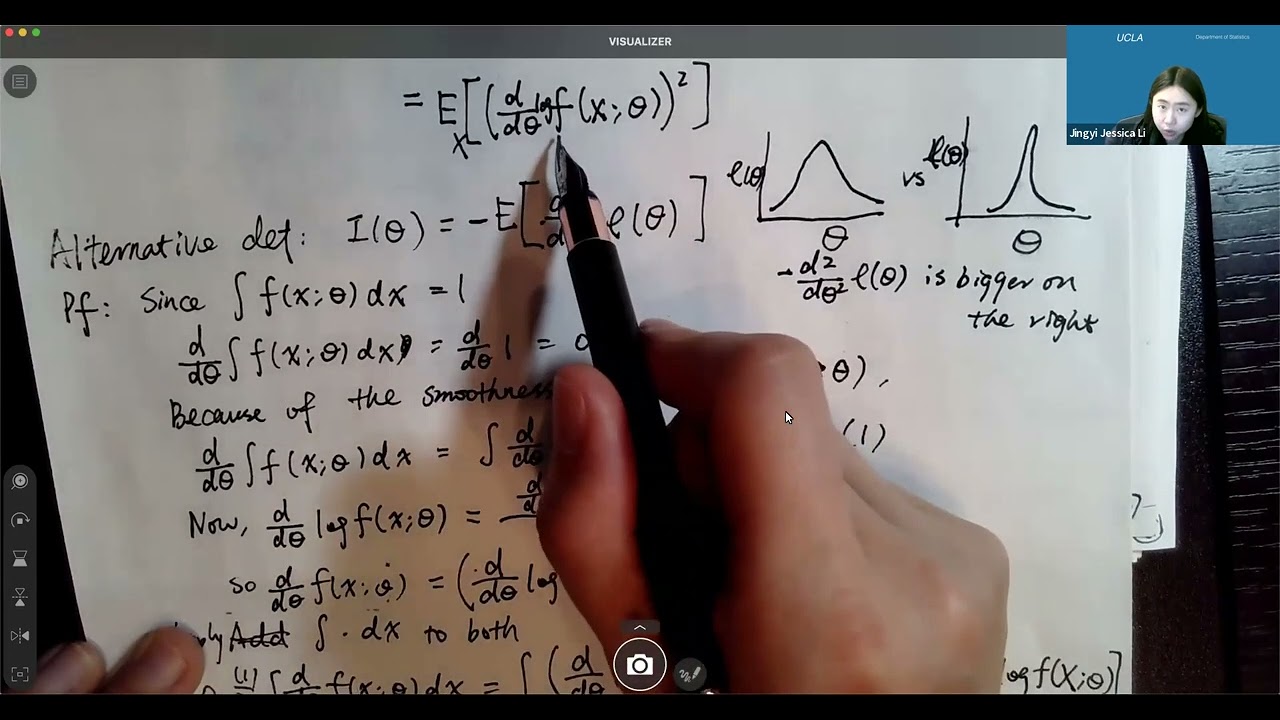 VISUALIZER
UCLA
Department of Statistics
Jingyi Jessica Li
= E_X[(d/dθ log f(X;θ))²]
ℓ(θ) vs ℓ(θ)
θ θ
Alternative def: I(θ) = -E[ ℓ(θ)]
-d²/dθ² ℓ(θ) is bigger on
the right
Pf: Since ∫ f(x;θ) dx = 1
d/dθ ∫ f(x;θ) dx = d/dθ 1 =
θ),
Because of the smoothness
(1)
d/dθ ∫ f(x;θ) dx = ∫ d/dθ
Now, d/dθ log f(x;θ) =
so d/dθ f(x;θ) = (d/dθ log
Add ∫ · dx to both
(1) ∫ d/dθ f(x;θ) dx = ∫ (d/dθ
log f(X;θ)]